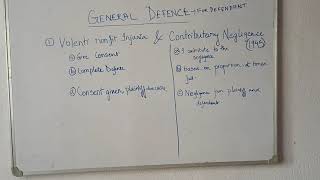 GENERAL DEFENCE - FOR DEFENDANT
① Volenti nonfit Injuria & Contributory Negligence (1945)
Ⓐ Give Consent
Ⓑ Complete Defence
Ⓒ Consent given plaintiff
Ⓐ I contribute to the negligence
Ⓑ based on proportion
Ⓒ Negligence from plaintiff and defendant